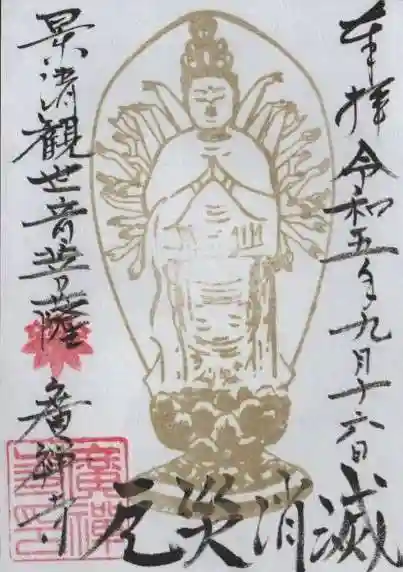 奉拝 令和五年九月十六日
景清観世音菩薩
廣禅寺
厄災消滅